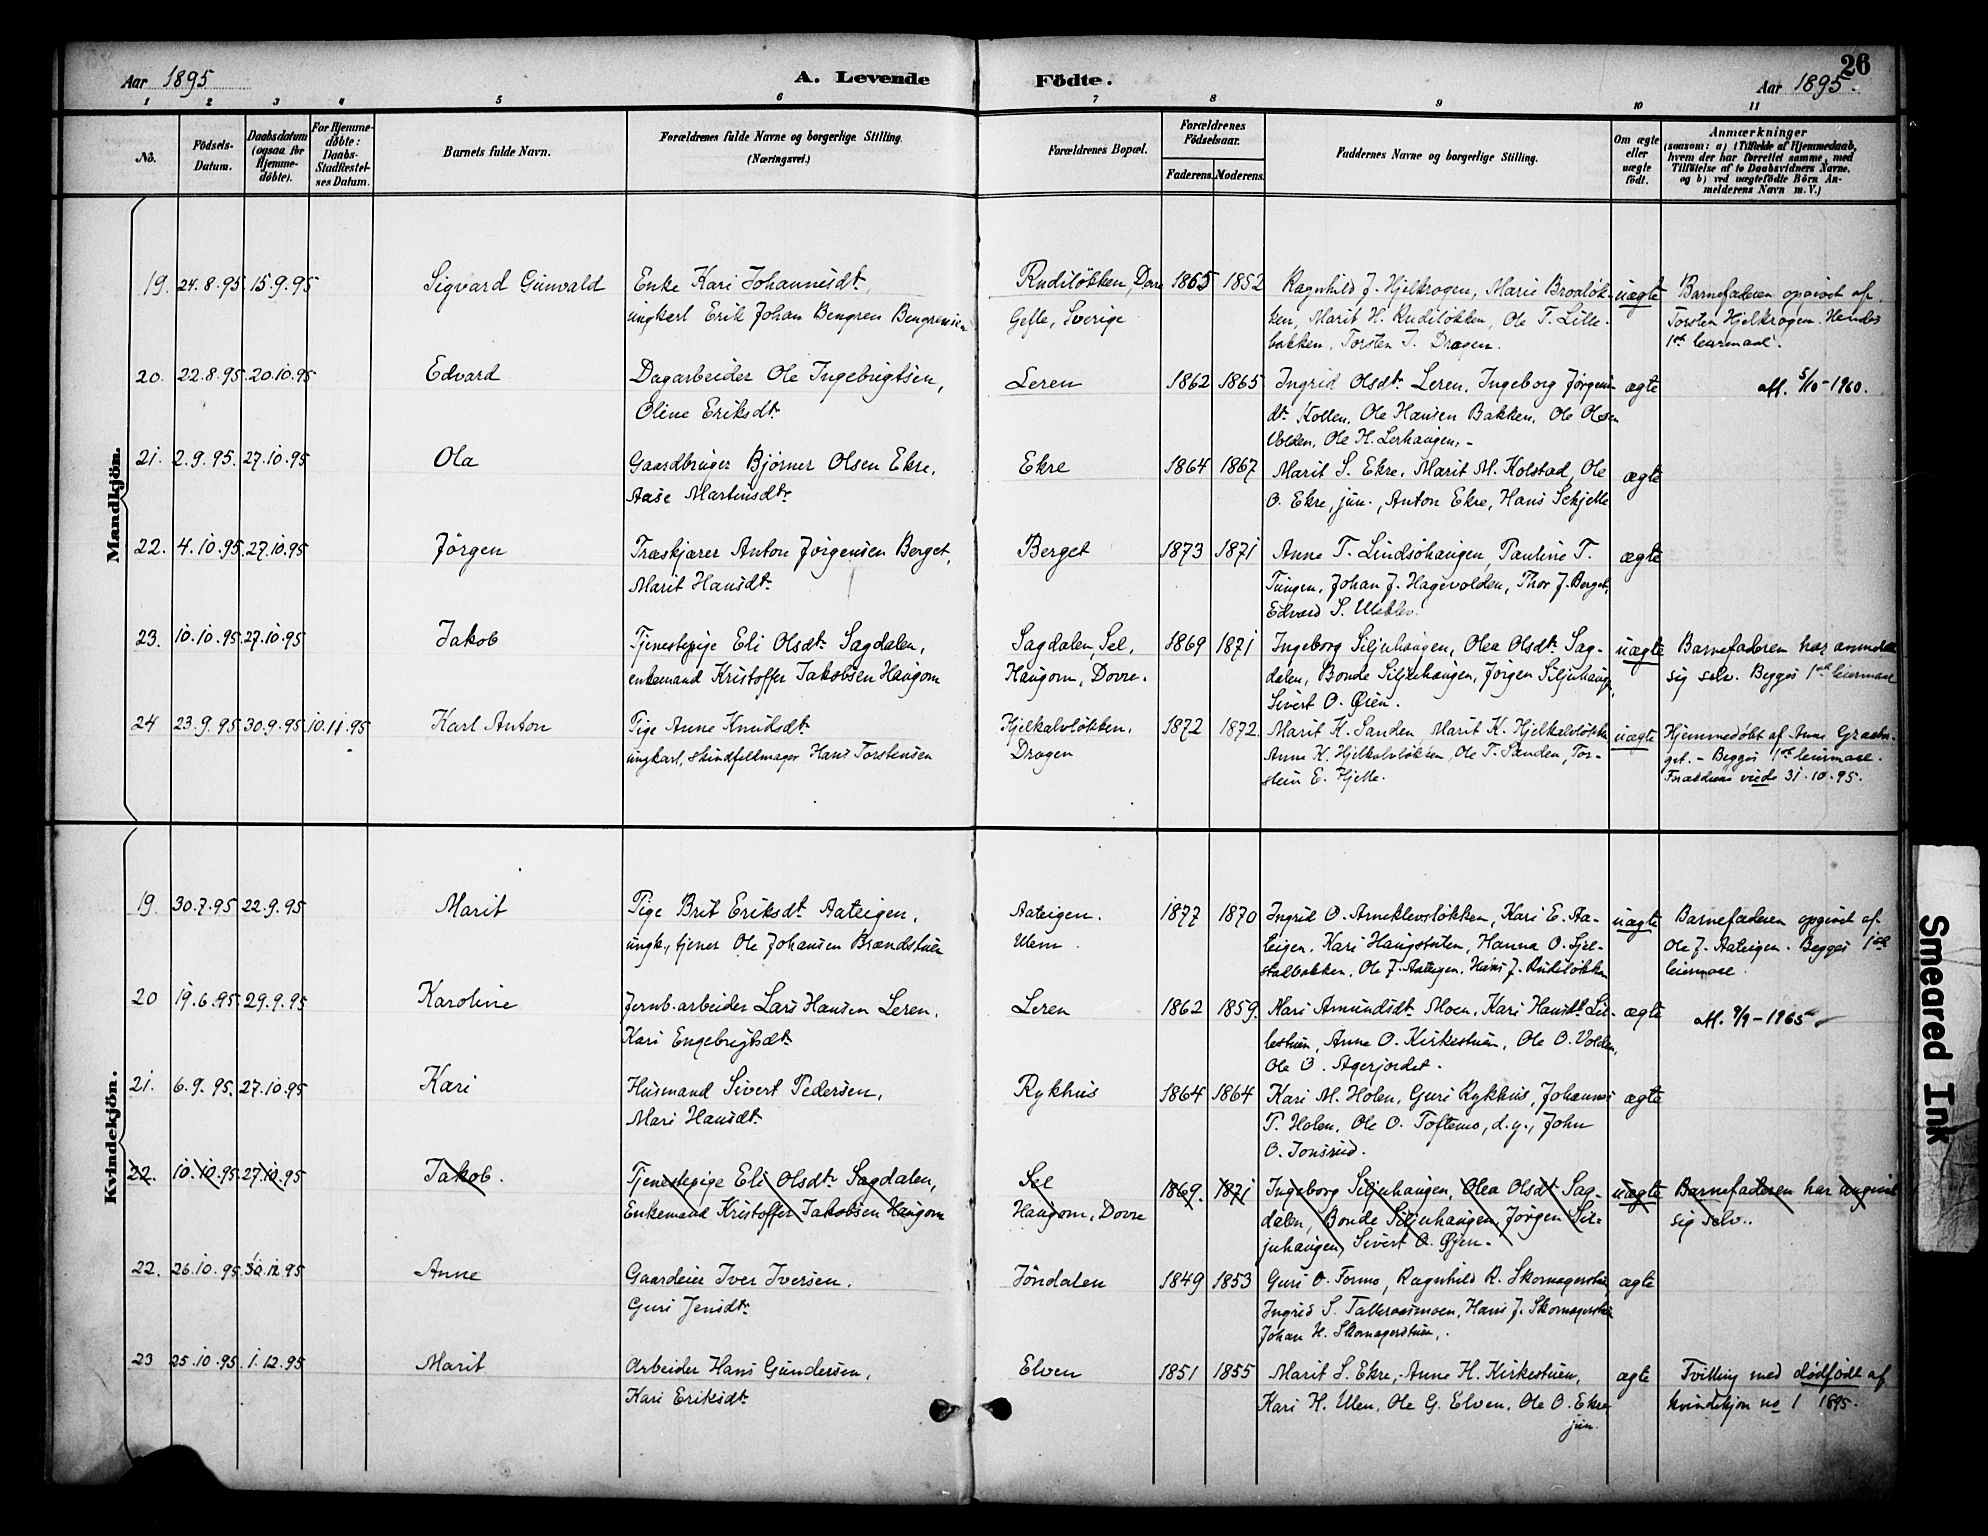 26
Aar 1895
A. Levende Födte.
Aar 1895.
1 2 3 4 5 6 7 8 9 10 11
No.
Födsels-Datum.
Daabsdatum (ogsaa for Hjemme-döbte).
For Hjemme-döbte: Daabs-Stadfæstel-ses Datum.
Barnets fulde Navn.
Forældrenes fulde Navne og borgerlige Stilling. (Næringsvei.)
Forældrenes Bopæl.
Forældrenes Födselsaar.
Faderens. Moderens.
Faddernes Navne og borgerlige Stilling.
Om ægte eller uægte födt.
Anmærkninger
(saasom: a) i Tilfælde af Hjemmedaab,
hvem der har forrettet samme, med
Tilföielse af to Daabsvidners Navne,
og b) ved uægtefödte Börn An-
melderens Navn m. V.)
Mandkjön.
19. 24.8.95 15.9.95 Sigvard Gunvald Enke Kari Johannesdt., Rudiløkken, Dovre 1865 1852 Ragnhild J. Hjelkrogen, Marie Broaløk- uægte Barnefaderen opgivet af
ungkarl Erik Johan Bengren Bengrensen Gefle, Sverige ken, Marit H. Rudiløkken, Ole T. Lille- Torsten Hjelkrogen. Hendes
bakken, Torsten T. Dragen. 1st leiermaal.
20. 22.8.95 20.10.95 Edvard Dagarbeider Ole Ingebrigtsen, Leren 1862 1865 Ingrid Olsdt. Leren, Ingeborg Jørgens- ægte Att. 5/10-1960.
Oline Eriksdt. dt. Kollen, Ole Hansen Bakken, Ole Olsen
Volden, Ole H. Lerhaugen.-
21. 2.9.95. 27.10.95 Ola Gaardbruger Bjørner Olsen Ekre, Ekre 1864 1867 Marit S. Ekre, Marit M. Kolstad, Ole ægte
Aase Martinsdt. O. Ekre, jun., Anton Ekre, Hans Schjelle
22. 4.10.95. 27.10.95 Jørgen Træskjærer Anton Jørgensen Berget, Berget 1873 1871 Anne T. Lindsøhaugen, Pauline T. ægte
Marit Hansdt. Tungen, Johan J. Hagevolden, Thor J. Berget,
Edvard S. Ulekleo.
23. 10.10.95. 27.10.95 Jakob Tjenestepige Eli Olsdt. Sagdalen, Sagdalen, Sel, 1869 1871 Ingeborg Siljuhaugen, Olea Olsdt. Sag- uægte Barnefaderen har anmeldt
enkemand Kristoffer Jakobsen Haugom Haugom, Dovre. dalen, Bonde Siljuhaugen, Jørgen Siljuhaugen, sig selv. Begges 1ste leiermaal
Sivert O. Øien.
24 23.9.95 30.9.95 10.11.95 Karl Anton Pige Anne Knudsdt. Hjelkalvløkken, 1872 1872. Marit K. Sanden, Marit K. Hjelkalvløkken uægte Hjemmedøbt af Anne
ungkarl, skindfeldmager Hans Torstensen Dragen Anne K. Hjelkalvløkken, Ole T. Sanden, Tor- get. - Begges 1ste leiermaal.
stein E. Hjelle. Forældrene viede 31.10.95.
Kvindekjön.
19. 30.7.95 22.9.95 Marit Pige Brit Eriksdt. Aateigen, Aateigen. 1877 1870 Ingrid O. Arneklevsløkken, Kari E. Aa- uægte Barnefaderen opgivet af
ungk., tjener Ole Johansen Brændstuen Ulem. teigen, Kari Haugstuten, Hanna O. Sjel- Ole J. Aateigen. Begges 1ste
stadbakken, Ole J. Aateigen, Hans J. Rudiløkken leiermaal.
20 19.6.95 29.9.95 Karoline Jernb.arbeider Lars Hansen Leren, Leren 1862 1859. Kari Amundsdt. Moen, Kari Hansdt. Lil- ægte Att. 9/9-1965
Kari Engebrigtsdt. lestuen, Anne O. Kirkestuen, Ole O. Volden,
Ole O. Agerjordet.
21. 6.9.95. 27.10.95 Kari Husmand Sivert Pedersen, Rykhus 1864 1864 Kari M. Holen, Guri Rykhus, Johannes ægte
Mari Hansdt. P. Holen, Ole O. Toftemo, d.y., John
O. Jonsrud.
22. 10.10.95. 27.10.95 Jakob. Tjenestepige Eli Olsdt. Sagdalen, Sel 1869. 1871 Ingeborg Siljuhaugen, Olea Olsdt. Sag- uægte Barnefaderen har angivet
Enkemand Kristoffer Jakobsen Haugom Haugom, Dovre dalen, Bonde Siljuhaugen, Jørgen Sil- sig selv.
juhaugen, Sivert O. Øjen.
22. 26.10.95. 12.95 Anne Gaardeier Iver Iversen, Jöndalen 1849 1853 Guri O. Formo, Ragnhild R. Skomagerstuen, ægte
Guri Jensdt. Ingrid S. Talleraasmoen, Hans J. Skomagerstuen
Johan H. Skomagerstuen.
23 25.10.95. 1.12.95 Marit Arbeider Hans Gundersen, Elven 1851 1855 Marit S. Ekre, Anne H. Kirkestuen, ægte Tvilling med dødfødt af
Kari Eriksdt. Kari H. Ulen, Ole G. Elven, Ole O. Ekre kvindekjøn no 1 1895.
jun.
Smeared Ink